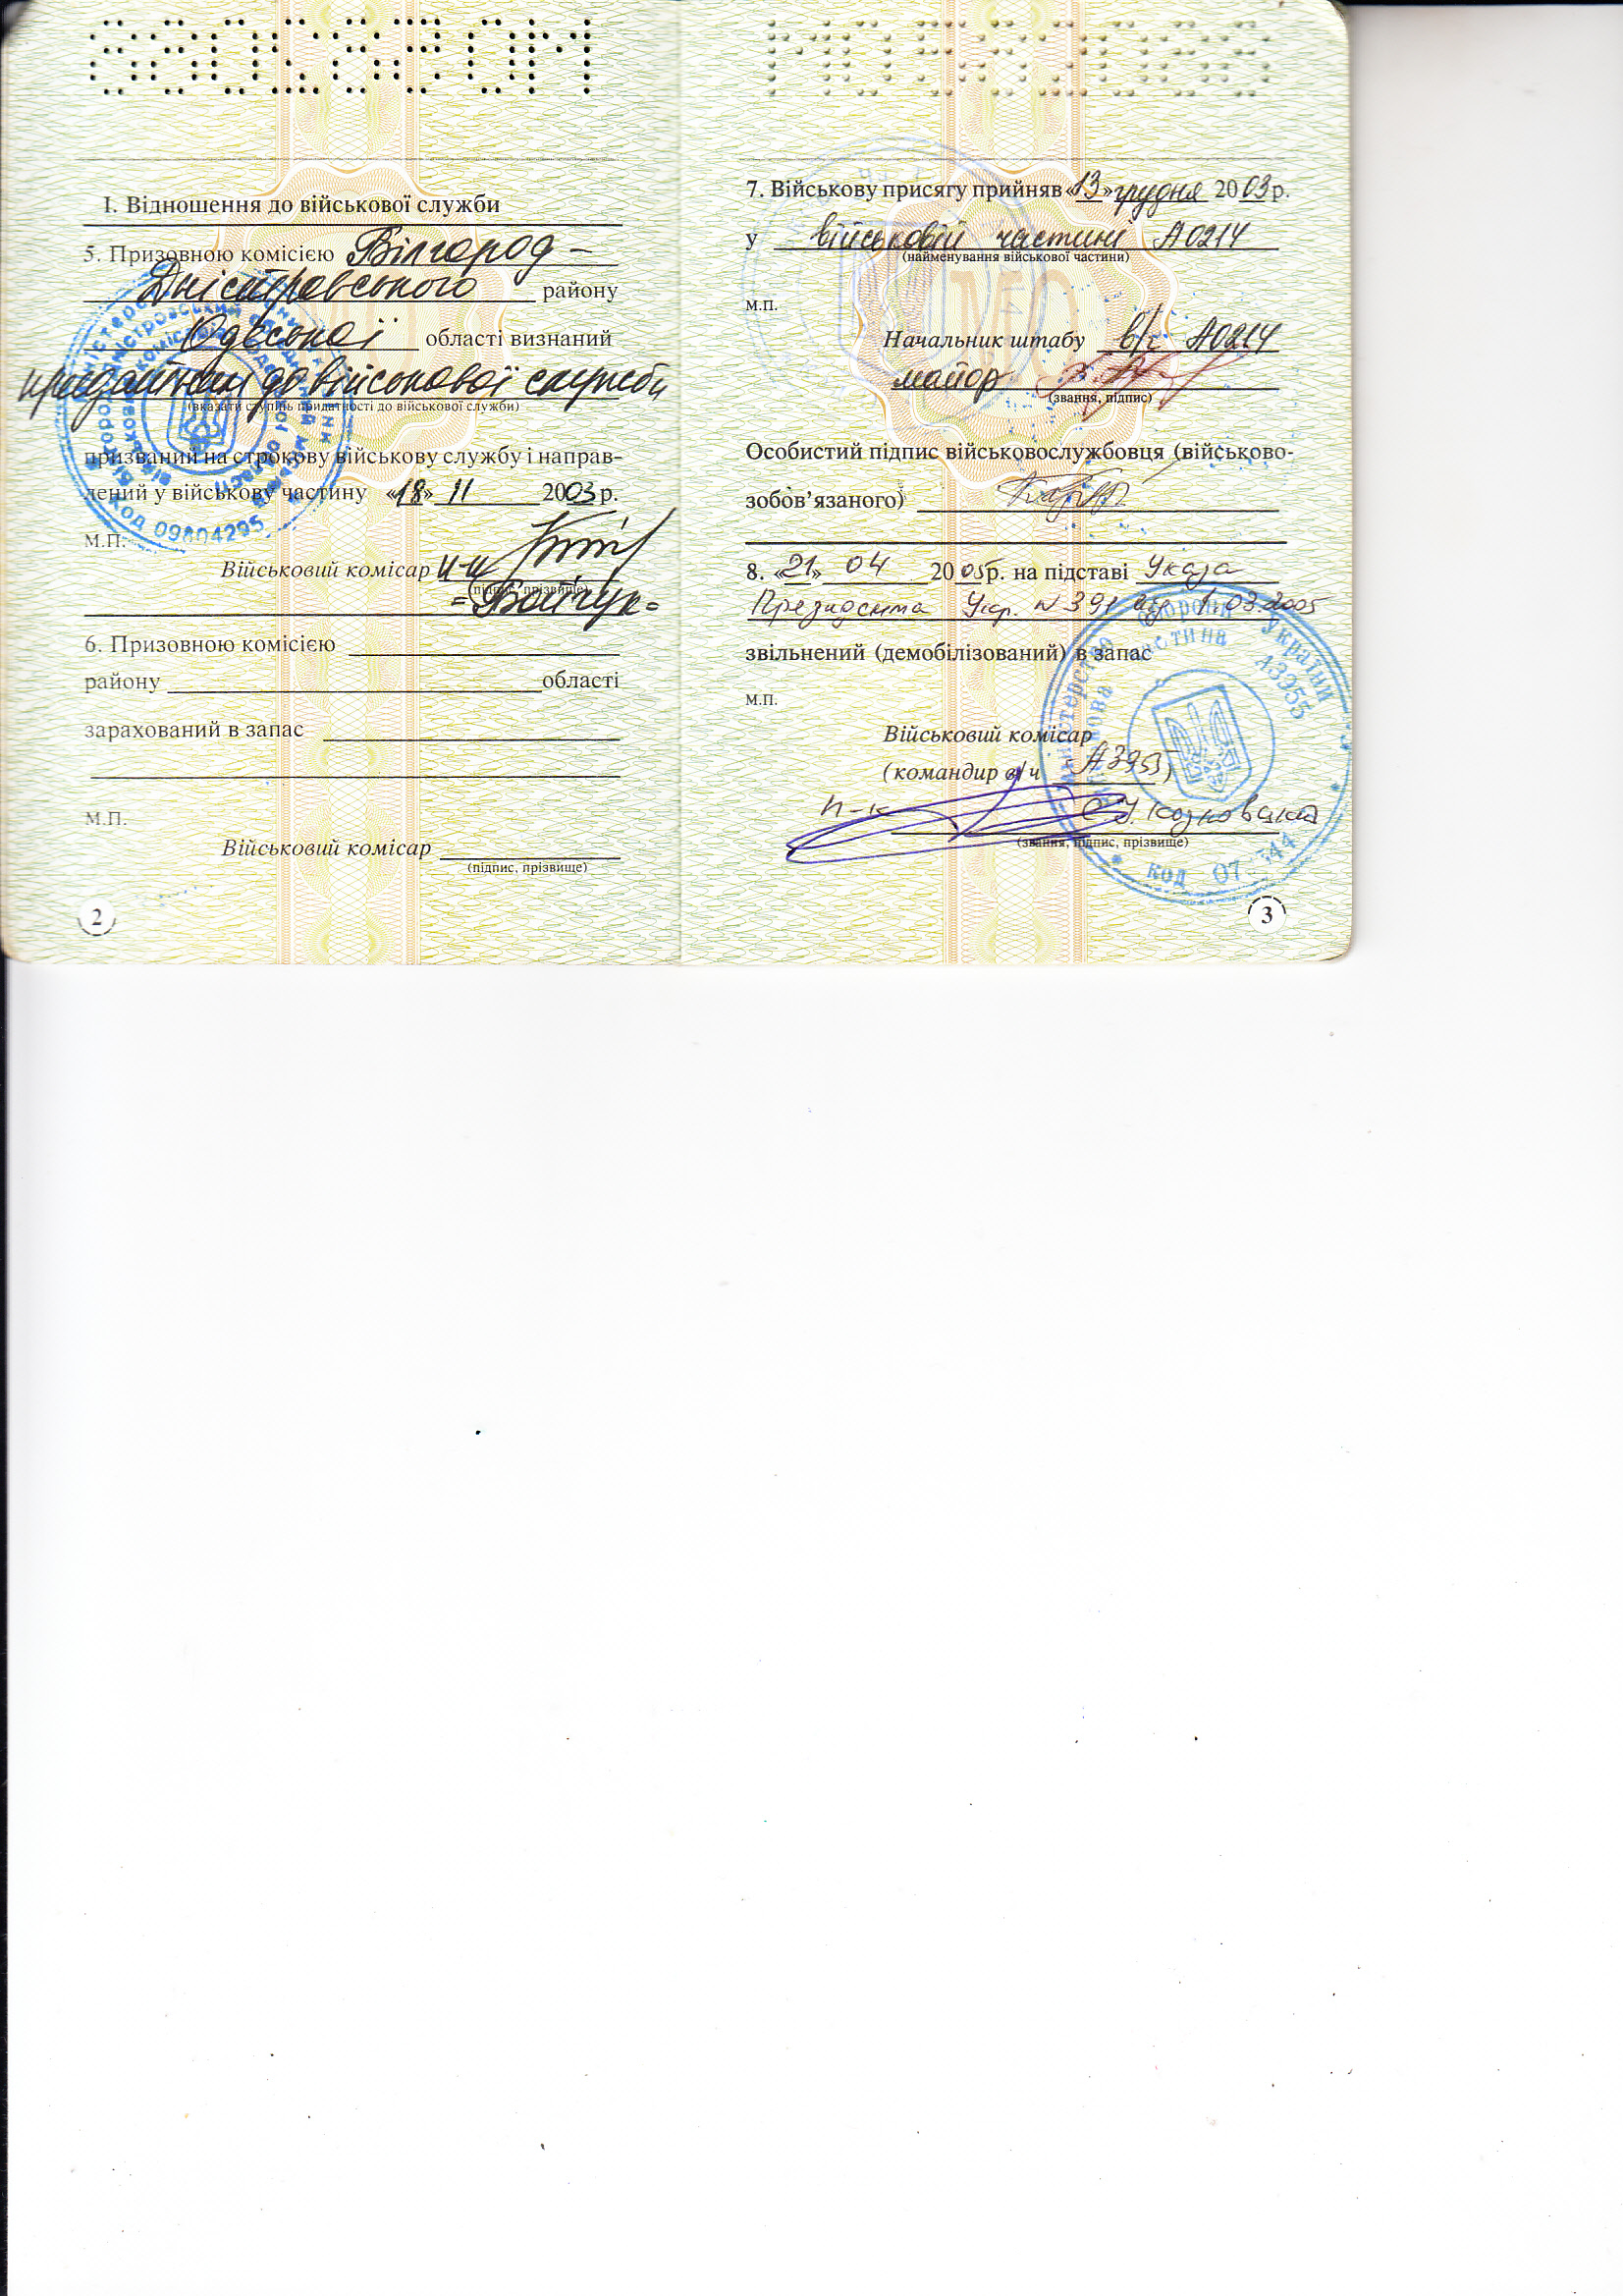 І. Відношення до військової служби
5. Призовною комісією Білгород –
Дністровського району
Одеської області визнаний
придатним до військової служби
(вказати ступінь придатності до військової служби)
призваний на строкову військову службу і направ-
лений у військову частину «18» 11 2003 р.
М.П.
Військовий комісар п-п
(підпис, прізвище)
=Бойчук=
6. Призовною комісією
району области
зарахований в запас
М.П.
Військовий комісар
(підпис, прізвище)
2
код 09804295
7. Військову присягу прийняв «13» грудня 2003 р.
у військовій частині А0214
(найменування військової частини)
М.П.
Начальник штабу в/ч А0214
майор
(звання, підпис)
Особистий підпис військовослужбовця (військово-
зобов’язаного)
8. «21» 04 2005 р. на підставі Указа
Президента Укр. N 391 від 1.03.2005
звільнений (демобілізований) в запас
М.П.
Військовий комісар
(командир в/ч А3955)
п-к
(звання, підпис, прізвище)
Міністерство оборони України
Військова частина А3955
код 07 344
3